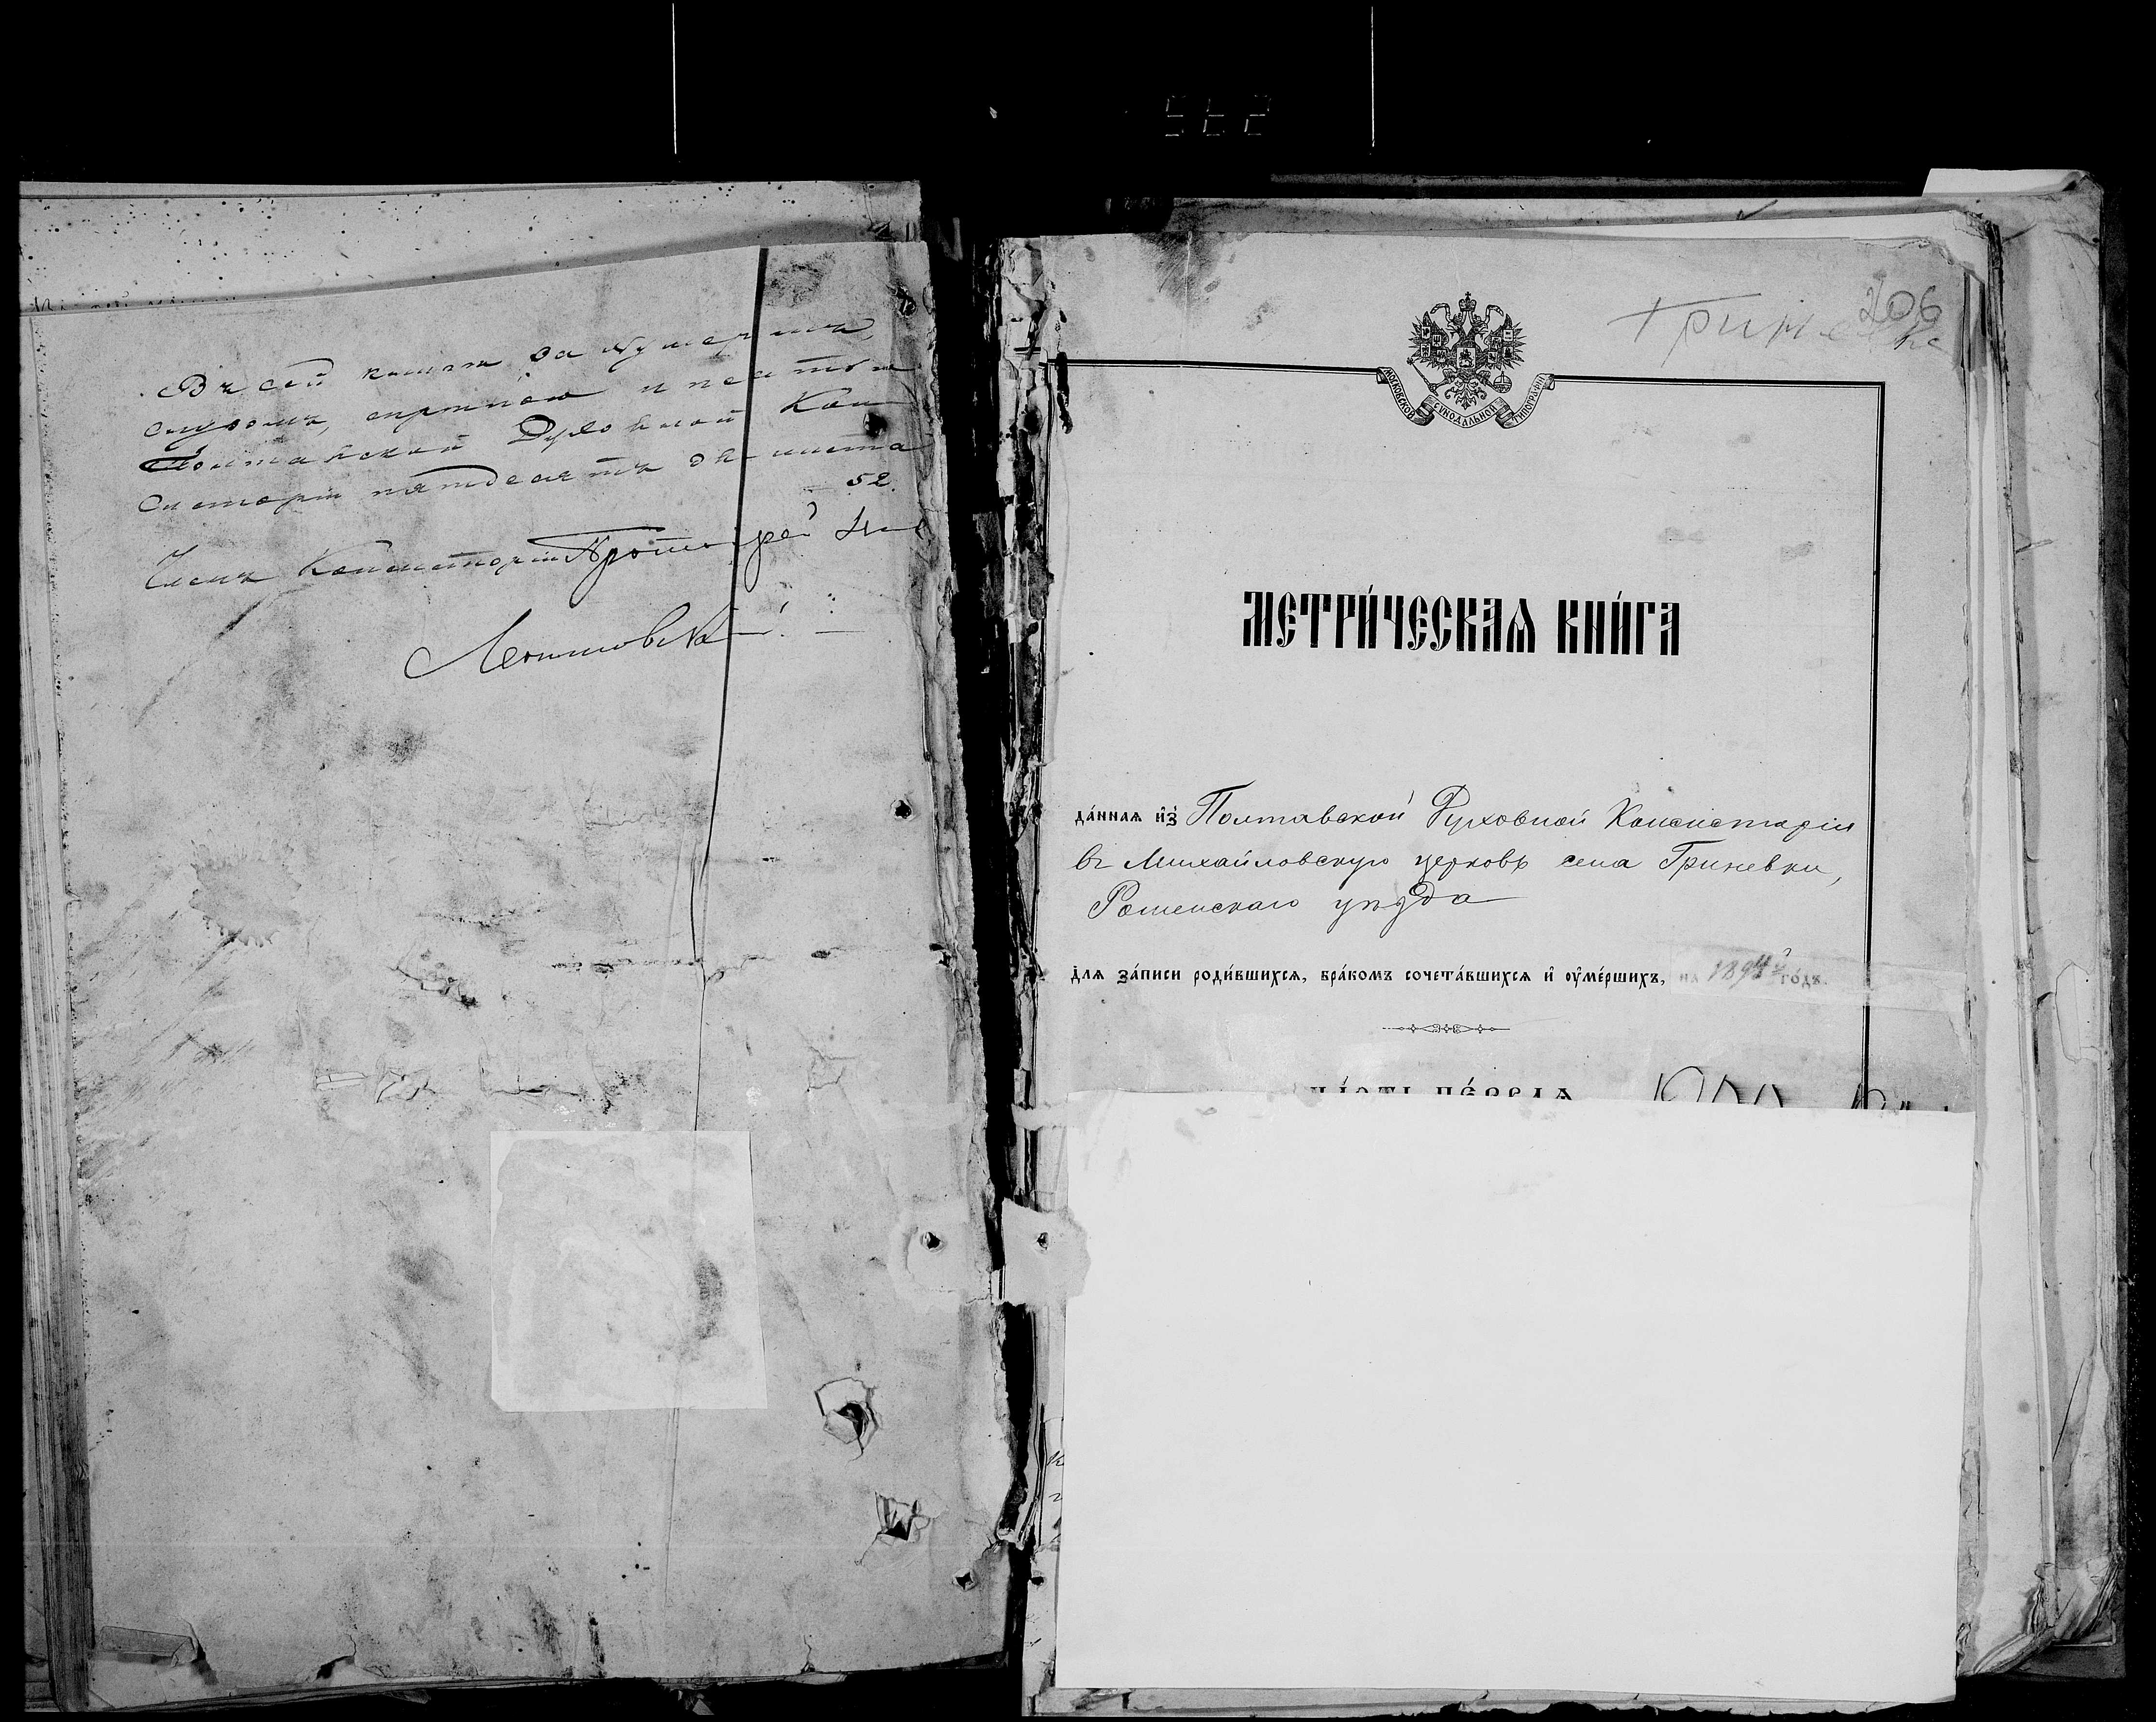 Въ сей книгѣ за нумерами,
шнуромъ, скрѣпою и печатью
Полтавской Духовной Кон
систоріи пятьдесятъ два листа
52.
Членъ Консисторіи Протоіерей
206
Гриневка
МОСКОВСКОЙ СѴНОДАЛЬНОЙ ТИПОГРАФІИ
МЕТРИ́ЧЕСКАѦ КНИ́ГА
да́ннаѧ и҆з̾ Полтавской Духовной Консисторіи
въ Михайловскую церковь села Гриневки,
Роменскаго уѣзда
для за́писи роди́вшихсѧ, бра́комъ сочета́вшихсѧ и҆ ᲂу҆ме́ршихъ, на 1894й го́дъ.
ча́сть пе́рваѧ